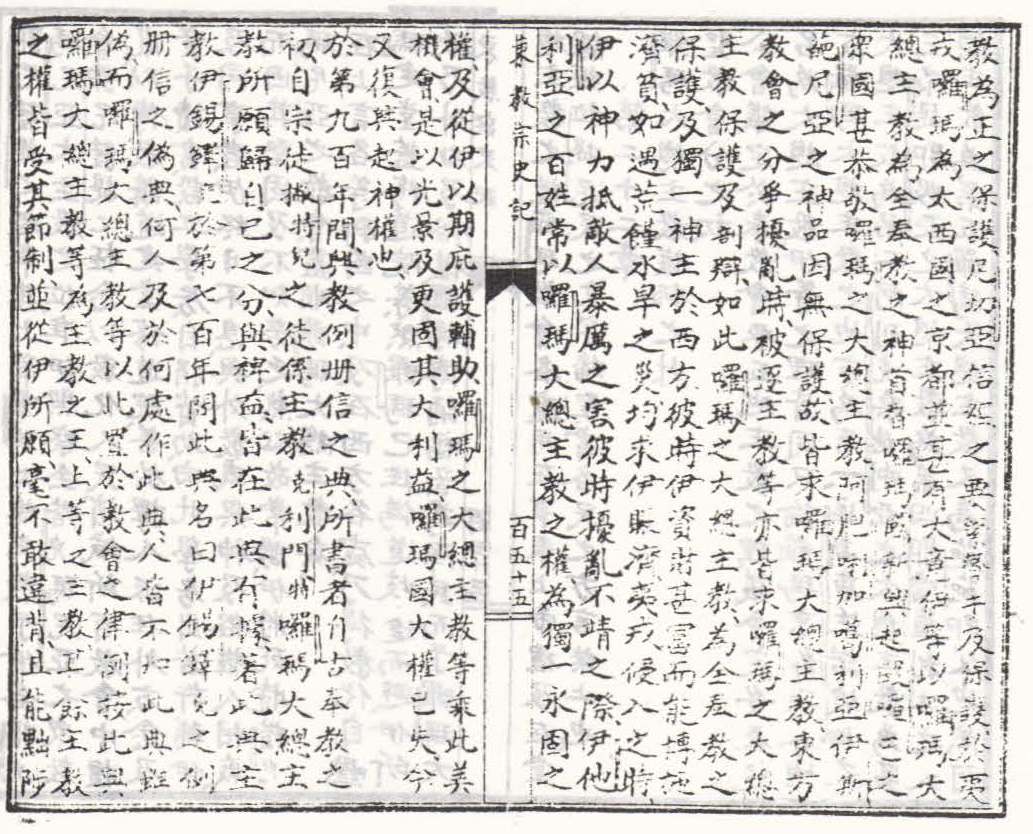 教為正之保護尼切亞信經之要
及保護於夷
戎囉瑪為太西國之京都並甚有大
伊等以囉瑪大
總主教為全奉教之神首
興起
之
衆國甚恭敬囉瑪之大總主教阿
加葛利亞伊斯
葩尼亞之神品因無保護故皆求囉瑪大總主教東方
教會之分爭擾亂時被逐主教等亦皆求囉瑪之大總
主教保護及剖辯如此囉瑪之大總主教為全奉教之
保護及獨一神主於西方彼時伊資財甚富而能博施
濟貧如遇荒饉水旱之災均求伊賑濟夷戎侵入之時
伊以神力抵敵人暴厲之害彼時擾亂不靖之際伊他
利亞之百姓常以囉瑪大總主教之權為獨一永固之
東教宗史記
百五十五
權及從伊以期庇護輔助囉瑪之大總主教等乘此美
機會是以光景及更固其大利益囉瑪國大權已失今
又復興起神權也
於第九百年間與教例册信之典所書者自古奉教之
初自宗徒撒特
之徒係主教克利門特囉瑪大總主
教所願歸自己之分與裨益皆在此典有據著此典主
教伊錫鐸
於第七百年間此典名曰伊錫鐸
之例
册信之偽典何人及於何處作此典人皆不知此典
偽而囉瑪大總主教等以此置於教會之律例按此典
囉瑪大總主教等為主教之王上等之主教其餘主教
之權皆受其節制並從伊所願毫不敢違背且能黜陟